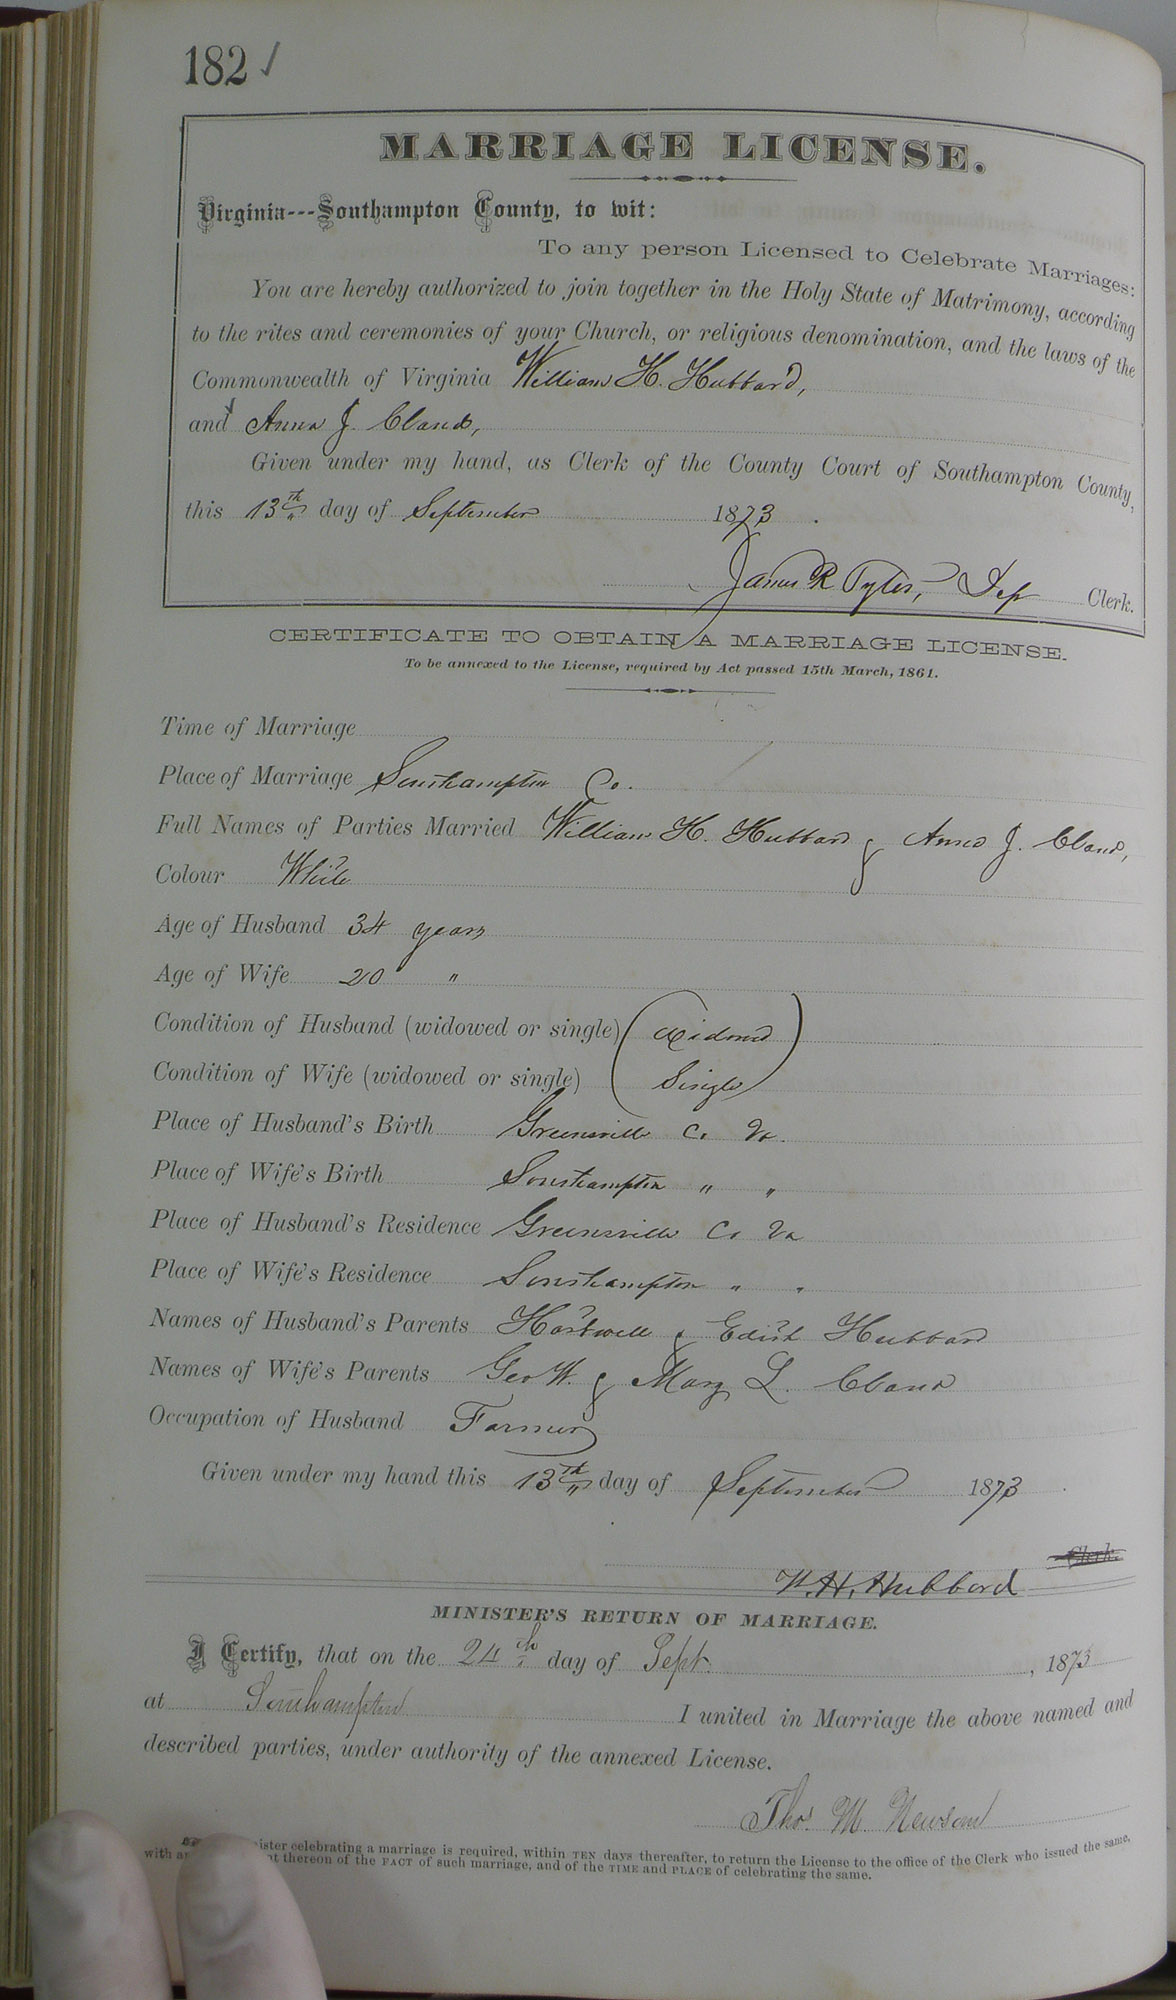 182 ✓
MARRIAGE LICENSE.
Virginia---Southampton County, to wit:
To any person Licensed to Celebrate Marriages:
You are hereby authorized to join together in the Holy State of Matrimony, according
to the rites and ceremonies of your Church, or religious denomination, and the laws of the
Commonwealth of Virginia William H. Hubbard,
and Anna J. Claud,
Given under my hand, as Clerk of the County Court of Southampton County,
this 13th day of September 1873.
James R Tyler, Dep Clerk.
CERTIFICATE TO OBTAIN A MARRIAGE LICENSE.
To be annexed to the License, required by Act passed 15th March, 1861.
Time of Marriage
Place of Marriage Southampton Co.
Full Names of Parties Married William H. Hubbard & Anna J. Claud,
Colour White
Age of Husband 34 years
Age of Wife 20 "
Condition of Husband (widowed or single) (Widowed)
Condition of Wife (widowed or single) (Single)
Place of Husband's Birth Greensville Co Va.
Place of Wife's Birth Southampton " "
Place of Husband's Residence Greensville Co Va
Place of Wife's Residence Southampton " "
Names of Husband's Parents Hartwell & Edith Hubbard
Names of Wife's Parents Geo W. & Mary L. Claud
Occupation of Husband Farmer
Given under my hand this 13th day of September 1873
Clerk.
W. H. Hubbard
MINISTER'S RETURN OF MARRIAGE.
I Certify, that on the 24th day of Sept. , 1873
at Southampton I united in Marriage the above named and
described parties, under authority of the annexed License.
Thos. M. Newsom
celebrating a marriage is required, within TEN days thereafter, to return the License to the office of the Clerk who issued the same,
with thereon of the FACT of such marriage, and of the TIME and PLACE of celebrating the same.